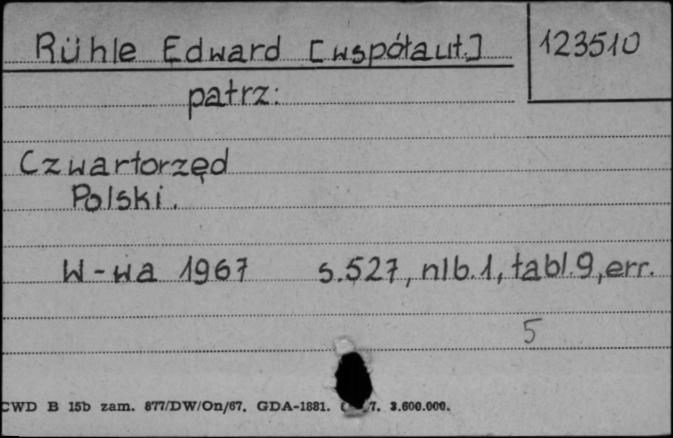 Rühle Edward [współaut.] 123510
patrz:
Czwartorzęd
Polski.
W-wa 1967 s.527, nlb.1, tabl.9, err.
5
CWD B 15b zam. 877/DW/On/67. GDA-1881. 7. 3.600.000.